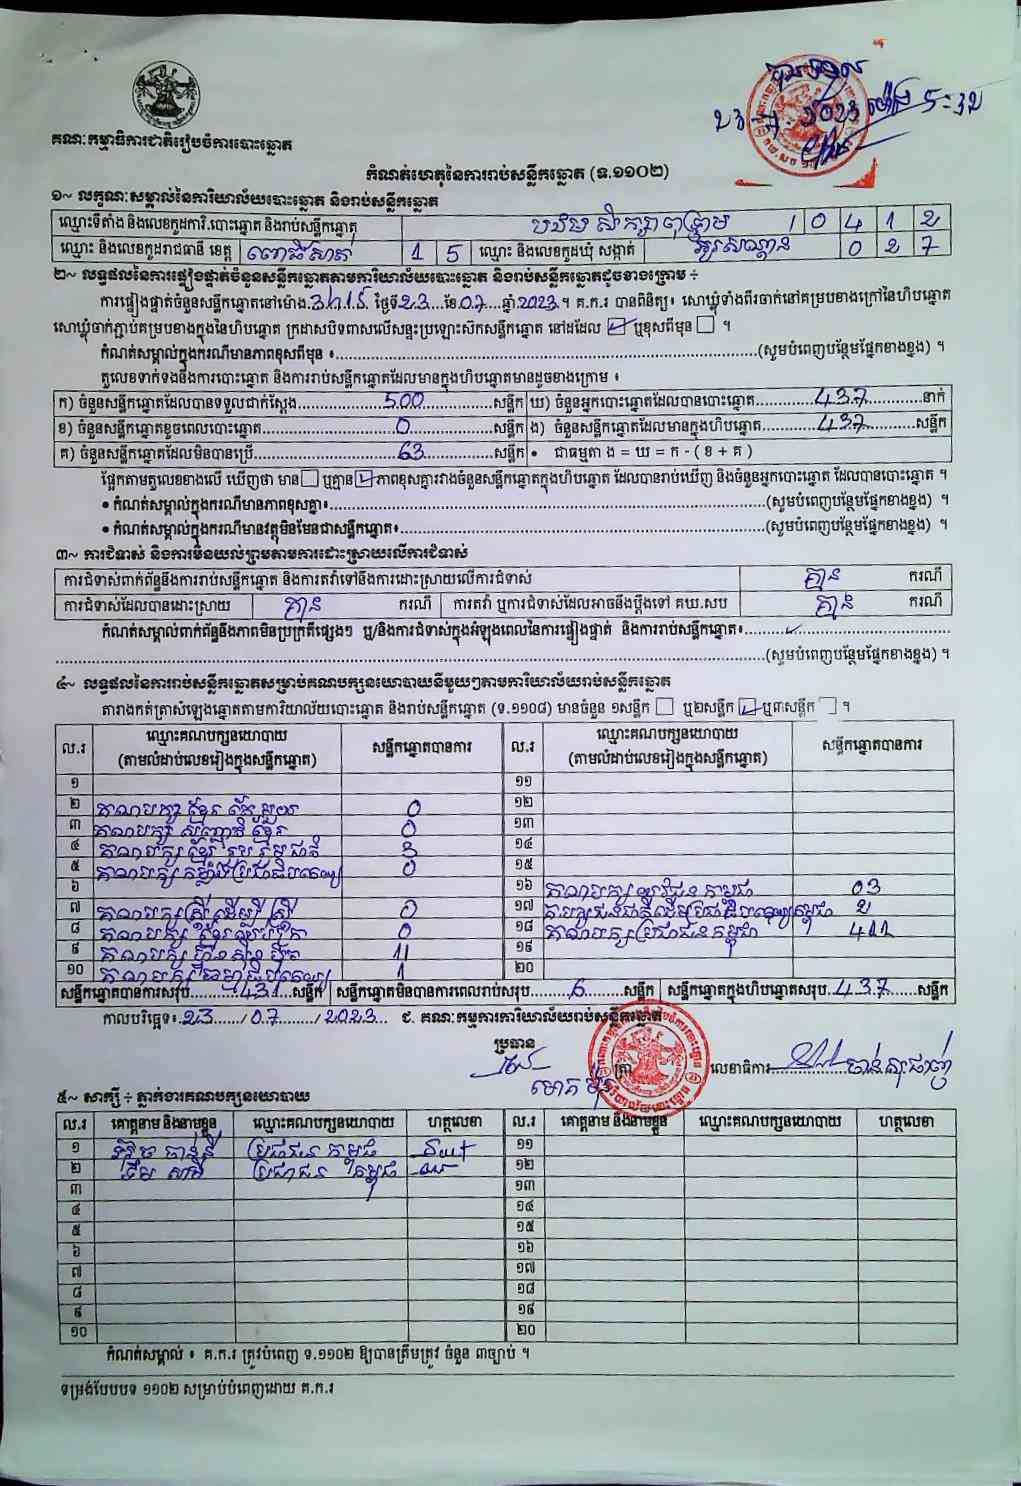 គណៈកម្មាធិការជាតិរៀបចំការបោះឆ្នោត
កំណត់ហេតុនៃការរាប់សន្លឹកឆ្នោត (ទ.១១០២)
១~ លក្ខណៈសម្គាល់នៃការិយាល័យបោះឆ្នោត និងរាប់សន្លឹកឆ្នោត
ឈ្មោះទីតាំង និងលេខកូដការិ.បោះឆ្នោត និងរាប់សន្លឹកឆ្នោត 1 0 4 1 2
ឈ្មោះ និងលេខកូដរាជធានី ខេត្ត ពោធិ៍សាត់ 1 5 ឈ្មោះ និងលេខកូដឃុំ សង្កាត់ 0 2 7
២~ លទ្ធផលនៃការផ្ទៀងផ្ទាត់ចំនួនសន្លឹកឆ្នោតតាមការិយាល័យបោះឆ្នោត និងរាប់សន្លឹកឆ្នោតដូចខាងក្រោម ÷
ការផ្ទៀងផ្ទាត់ចំនួនសន្លឹកឆ្នោតនៅម៉ោង 3h15 ថ្ងៃទី23 ខែ07 ឆ្នាំ2023។ គ.ក.រ បានពិនិត្យ៖ សោឃ្លុំទាំងពីរចាក់នៅគម្របខាងក្រៅនៃហិបឆ្នោត
សោឃ្លុំចាក់ភ្ជាប់គម្របខាងក្នុងនៃហិបឆ្នោត ក្រដាសបិទពាសលើសន្ទះប្រឡោះស៊កសន្លឹកឆ្នោត នៅដដែល ឬខុសពីមុន ។
កំណត់សម្គាល់ក្នុងករណីមានភាពខុសពីមុន ៖ (សូមបំពេញបន្ថែមផ្នែកខាងខ្នង) ។
តួលេខទាក់ទងនឹងការបោះឆ្នោត និងការរាប់សន្លឹកឆ្នោតដែលមានក្នុងហិបឆ្នោតមានដូចខាងក្រោម ៖
ក) ចំនួនសន្លឹកឆ្នោតដែលបានទទួលជាក់ស្តែង 500 សន្លឹក ឃ) ចំនួនអ្នកបោះឆ្នោតដែលបានបោះឆ្នោត 437 នាក់
ខ) ចំនួនសន្លឹកឆ្នោតខូចពេលបោះឆ្នោត 0 សន្លឹក ង) ចំនួនសន្លឹកឆ្នោតដែលមានក្នុងហិបឆ្នោត 437 សន្លឹក
គ) ចំនួនសន្លឹកឆ្នោតដែលមិនបានប្រើ 63 សន្លឹក • ជាធម្មតា ង = ឃ = ក - ( ខ + គ )
ផ្អែកតាមតួលេខខាងលើ ឃើញថា មាន ឬគ្មាន ភាពខុសគ្នារវាងចំនួនសន្លឹកឆ្នោតក្នុងហិបឆ្នោត ដែលបានរាប់ឃើញ និងចំនួនអ្នកបោះឆ្នោត ដែលបានបោះឆ្នោត ។
• កំណត់សម្គាល់ក្នុងករណីមានភាពខុសគ្នា៖ (សូមបំពេញបន្ថែមផ្នែកខាងខ្នង) ។
• កំណត់សម្គាល់ក្នុងករណីមានវត្ថុមិនមែនជាសន្លឹកឆ្នោត៖ (សូមបំពេញបន្ថែមផ្នែកខាងខ្នង) ។
៣~ ការជំទាស់ និងការមិនយល់ព្រមតាមការដោះស្រាយលើការជំទាស់
ការជំទាស់ពាក់ព័ន្ធនឹងការរាប់សន្លឹកឆ្នោត និងការតវ៉ាទៅនឹងការដោះស្រាយលើការជំទាស់ គ្មាន ករណី
ការជំទាស់ដែលបានដោះស្រាយ គ្មាន ករណី ការតវ៉ា ឬការជំទាស់ដែលអាចនឹងប្តឹងទៅ គឃ.សប គ្មាន ករណី
កំណត់សម្គាល់ពាក់ព័ន្ធនឹងភាពមិនប្រក្រតីផ្សេងៗ ឬ/និងការជំទាស់ក្នុងអំឡុងពេលនៃការផ្ទៀងផ្ទាត់ និងការរាប់សន្លឹកឆ្នោត៖
(សូមបំពេញបន្ថែមផ្នែកខាងខ្នង) ។
៤~ លទ្ធផលនៃការរាប់សន្លឹកឆ្នោតសម្រាប់គណបក្សនយោបាយនីមួយៗតាមការិយាល័យរាប់សន្លឹកឆ្នោត
តារាងកត់ត្រាសំឡេងឆ្នោតតាមការិយាល័យបោះឆ្នោត និងរាប់សន្លឹកឆ្នោត (ទ.១១០៨) មានចំនួន ១សន្លឹក ឬ២សន្លឹក ឬ៣សន្លឹក ។
ល.រ ឈ្មោះគណបក្សនយោបាយ (តាមលំដាប់លេខរៀងក្នុងសន្លឹកឆ្នោត) សន្លឹកឆ្នោតបានការ ល.រ ឈ្មោះគណបក្សនយោបាយ (តាមលំដាប់លេខរៀងក្នុងសន្លឹកឆ្នោត) សន្លឹកឆ្នោតបានការ
១ ១១
២ គណបក្ស ខ្មែរ 0 ១២
៣ គណបក្ស ខ្មែរ 0 ១៣
៤ គណបក្ស ខ្មែរ រួបរួមជាតិ 3 ១៤
៥ គណបក្ស កម្លាំងប្រជាធិបតេយ្យ 0 ១៥
៦ ១៦ គណបក្ស យុវជន កម្ពុជា 03
៧ គណបក្ស ស្ត្រីដើម្បីស្ត្រី 0 ១៧ 2
៨ គណបក្ស ខ្មែរ 0 ១៨ គណបក្សប្រជាជនកម្ពុជា 411
៩ គណបក្ស ហ្វ៊ុនស៊ិនប៉ិច 11 ១៩
១០ គណបក្ស ប្រជាធិបតេយ្យ 1 ២០
សន្លឹកឆ្នោតបានការសរុប 431 សន្លឹក សន្លឹកឆ្នោតមិនបានការពេលរាប់សរុប 6 សន្លឹក សន្លឹកឆ្នោតក្នុងហិបឆ្នោតសរុប 437 សន្លឹក
កាលបរិច្ឆេទ៖ 23 / 07 / 2023 ជ. គណៈកម្មការការិយាល័យរាប់សន្លឹកឆ្នោត
ប្រធាន
ត្រា លេខាធិការ
៥~ សាក្សី ÷ ភ្នាក់ងារគណបក្សនយោបាយ
ល.រ គោត្តនាម និងនាមខ្លួន ឈ្មោះគណបក្សនយោបាយ ហត្ថលេខា ល.រ គោត្តនាម និងនាមខ្លួន ឈ្មោះគណបក្សនយោបាយ ហត្ថលេខា
១ ប្រជាជន កម្ពុជា ១១
២ ប្រជាជន កម្ពុជា ១២
៣ ១៣
៤ ១៤
៥ ១៥
៦ ១៦
៧ ១៧
៨ ១៨
៩ ១៩
១០ ២០
កំណត់សម្គាល់ ៖ គ.ក.រ ត្រូវបំពេញ ទ.១១០២ ឱ្យបានត្រឹមត្រូវ ចំនួន ៣ច្បាប់ ។
ទម្រង់បែបបទ ១១០២ សម្រាប់បំពេញដោយ គ.ក.រ